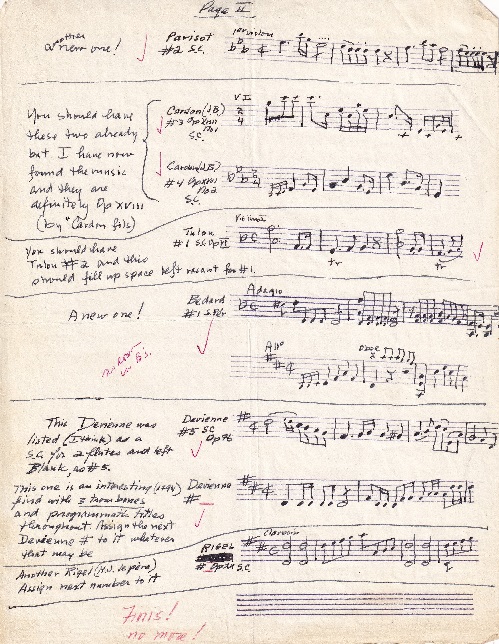 Page II
another
a new one!
Parisot
#2 S.C.
1er violon
You should have
these two already
but I have now
found the music
and they are
definitely Op XVIII
(by "Cardon fils)
Cardon (J.B.)
#3 Op XVIII
No 1
S.C.
V I
Cardon (J.B.)
#4 Op XVIII
No 2
S.C.
You should have
Tulou #2 and this
should fill up space left vacant for #1.
Tulou
#1 S.C. Op VI
Violino 1
tr
tr
A new one!
Bedard
#1 S.C.
Adagio
Allo
Oboe
no room
This Devienne was
listed (I think) as a
S.C. for 2 flutes and left
Blank, as #5.
Devienne
#5 S.C.
This one is an interesting (1794)
find with 3 trombones
and programmatic titles
throughout. Assign the next
Devienne # to it whatever
that may be
Devienne
#
Another Rigel (H.J. le père)
Assign next number to it
RIGEL
# Op XX S.C.
Clavecin
Finis!
no more!